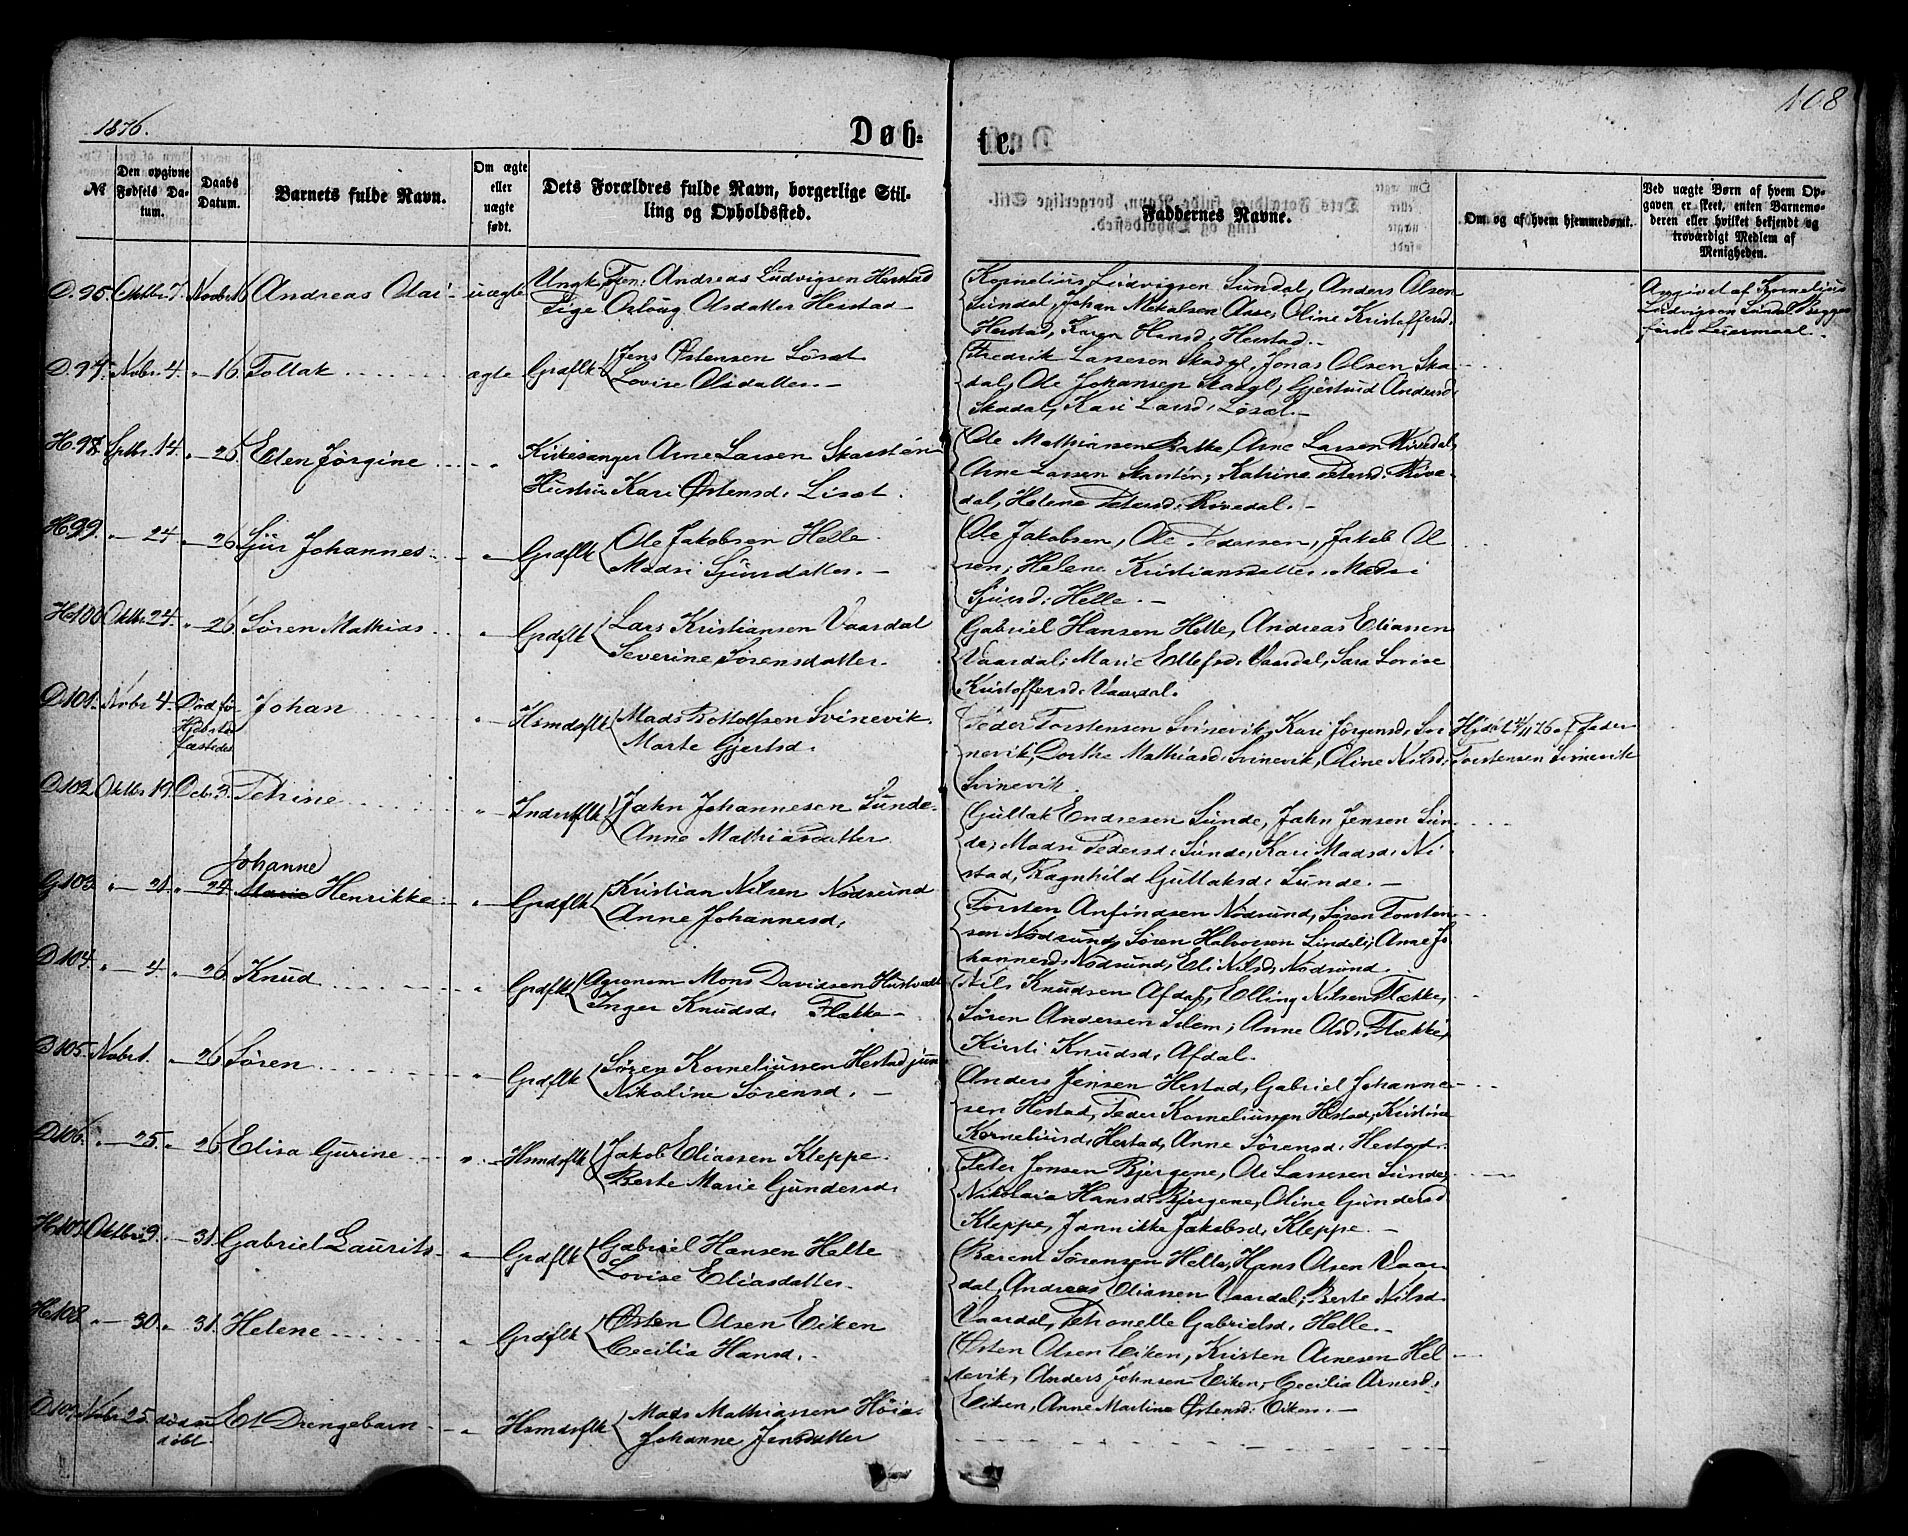 1876.
Døb-
te.
108
№
Den opgivne Fødsels Datum.
Daabs Datum.
Barnets fulde Navn.
Om ægte eller uægte født.
Dets Forældres fulde Navn, borgerlige Stilling og Opholdssted.
Faddernes Navne.
Om og af hvem hjemmedømt.
Ved uægte Børn af hvem Opgaven er skeet, enten Barnemoderen eller hvilket bekjendt og troværdigt Medlem af Menigheden.
D. 95. Oktbr 7. Novbr 16 Andreas Olai uægte Ungk. Andreas Ludvigsen Herstad
Pige Oslaug Olsdatter Herstad
Kornelius Ludvigsen Sundal, Anders Olsen
Sundal, Johan Mikalsen Aase, Oline Kristoffersd.
Herstad, Karen Hansd. Herstad.
Opgivet af Kornelius
Ludvigsen Sundal. Begges
første Leiermaal.
D. 97. Nobr. 4. " 16. Tollak ægte Grdflk Jens Østensen Løset
Lovise Olsdatter.
Fredrik Larsen Skadal, Jonas Olsen Ska-
dal, Ole Johansen Skadal, Gjertrud Andersd.
Skadal, Kari Larsd. Løset.
H. 98. Sptbr. 14. " 26. Elen Jørgine " Kirkesanger Arne Larsen Skarstén
Hustru Kari Østensd. Løset.
Ole Mathiassen Bakke, Arne Larsen Rivedal,
Arne Larsen Skarstén, Katrine Petersd. Rive-
dal, Helene Petersd. Rivedal.
H. 99. " 24 " 26 Sjur Johannes " Grdflk Ole Jakobsen Helle
Madsi Sjursdatter.
Ole Jakobsen, Ole Pedersen, Jakob Ol-
sen, Helene Kristiansdatter, Madsi
Sjursd. Helle.
H. 100. Oktbr. 24. " 26. Søren Mathias " Grdflk Lars Kristiansen Vaardal
Severine Sørensdatter.
Gabriel Hansen Helle, Andreas Eliassen
Vaardal, Marie Ellefsd. Vaardal, Sara Lovise
Kristoffersd. Vaardal.
D. 101. Nobr. 4. Død før Johan " Hsmdsflk Mads Rottolfsen Svinevik.
Marte Gjertsd.
Peder Torstensen Svinevik, Kari Jørgensd. Svi-
nevik, Dorthe Mathiasd. Svinevik, Oline Nilsd.
Svinevik.
Torstensen Svinevik
D. 102. Oktbr. 19. Dcbr. 3. Petrine " Inderstflk John Johannesen Sunde.
Anne Mathiasdatter
Guttak Endresen Sunde, John Jensen Sun-
de, Madsi Pedersd. Sunde, Kari Madsd. Ni-
stad, Ragnhild Guttaksd. Sunde.
Johanne
G. 103. " 21. " 24. Marie Henrikke " Grdflk Kristian Nilsen Nødsund
Anne Johannesd.
Torsten Anfindsen Nødsund, Søren Torsten-
sen Nødsund, Søren Halvorsen Lindeli, Anne Jo-
hannesd. Nødsund, Eli Nilsd. Nødsund.
D. 104. " 4. " 26. Knud " Grdflk Agronom Mons Davidsen Hustvedt
Inger Knudsd. Flekke
Nils Knudsen Afdal, Elling Nilsen Flekke,
Søren Andersen Solem, Anne Olsd. Flekke,
Kirsti Knudsd. Afdal.
D. 105. Nobr 1. " 26. Søren " Grdflk Søren Korneliussen Hestad jun.
Nikoline Sørensd.
Anders Jensen Hestad, Gabriel Johanne-
sen Hestad, Peder Korneliussen Hestad, Kristine
Korneliusd. Hestad, Anne Sørensd. Hestad.
D. 106. " 25. " 26. Elisa Gurine " Hsmdsflk Jakob Eliassen Kleppe
Berte Marie Gundersd.
Peter Jensen Bjergene, Ole Larsen Sunde,
Nikolaia Hansd. Bjergene, Oline Gundersd.
Kleppe, Jannikke Jakobsd. Kleppe.
H. 107. Oktbr. 9. " 31. Gabriel Laurits " Grdflk Gabriel Hansen Helle
Lovise Eliasdatter.
Barent Sørensen Helle, Hans Olsen Vaar-
dal, Andreas Eliassen Vaardal, Berte Nilsd.
Vaardal, Petronelle Gabrielsd. Helle.
H. 108. " 30. " 31. Helene " Grdflk Østen Olsen Eiken
Cecilia Hansd.
Østen Olsen Eiken, Kristen Arnesen Hel-
levik, Anders Johnsen Eiken, Cecilia Arnesd.
Eiken, Anne Martina Østensd. Eiken.
D. 109. Nobr. 25. Et Drengebarn " Hsmdsflk Mads Mathiassen Høie
Johanne Jensdatter